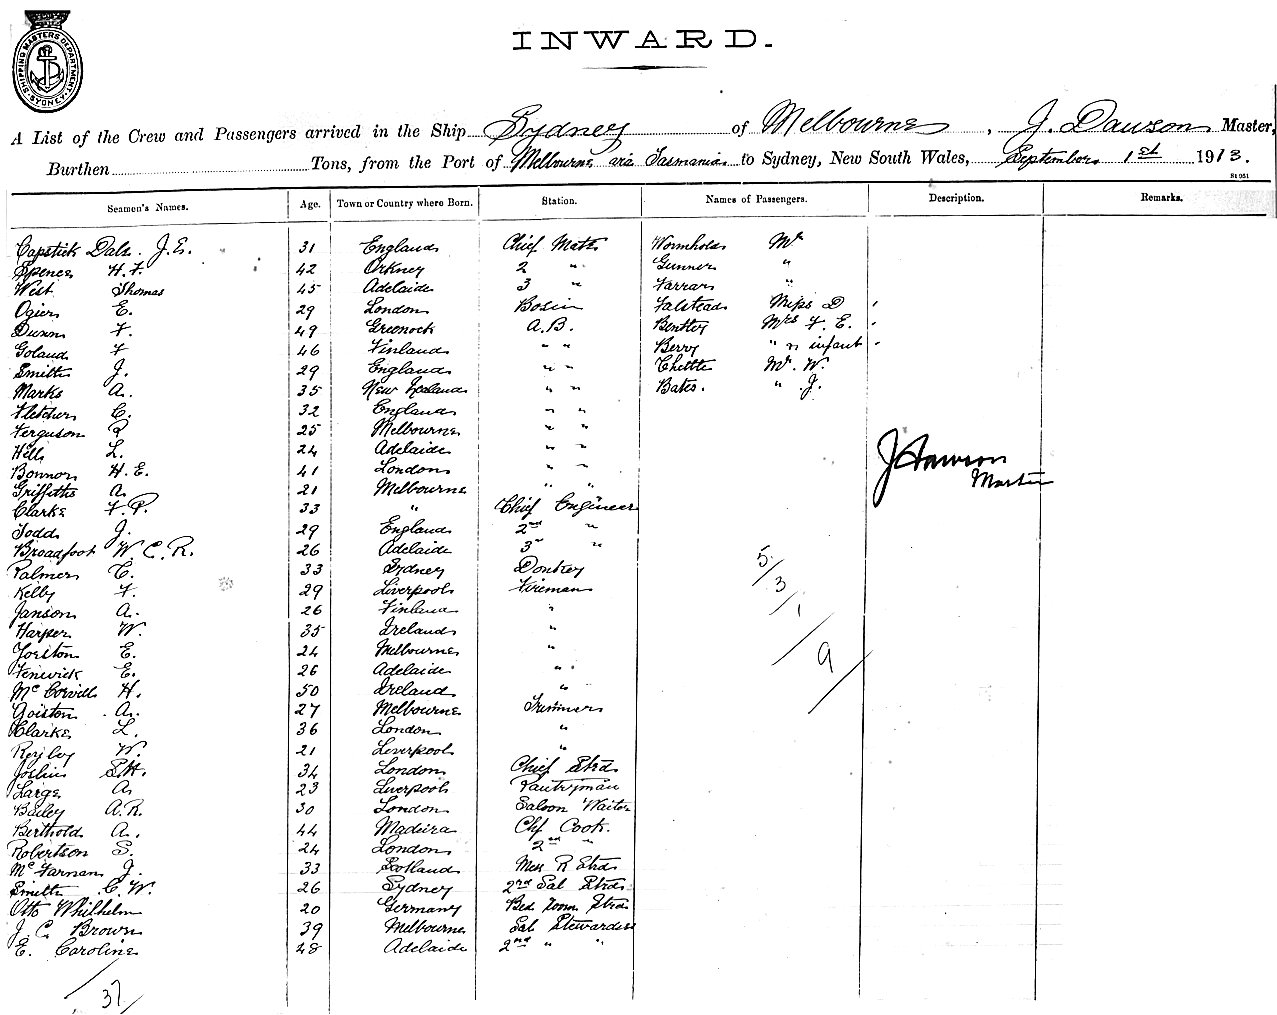 SHIPPING MASTERS DEPARTMENT SYDNEY
INWARD.
A List of the Crew and Passengers arrived in the Ship Sydney of Melbourne, J. Dawson Master,
Burthen Tons, from the Port of Melbourne via Tasmania to Sydney, New South Wales, September 1st 1913.
Seamen's Names. Age. Town or Country where Born. Station. Names of Passengers. Description. Remarks.
Capstick Dale. J.E. 31 England Chief Mate Wormholds Mr
Spence H. F. 42 Orkney 2 " Gunner "
West Thomas 45 Adelaide 3 " Farrar "
Ogier E. 29 London Bosun Falstead Miss D
Dunn F. 49 Greenock A.B. Bentley Mrs F. E.
Goland F 46 Finland " " Berry " & infant
Smith J. 29 England " " Chettle Mr. W.
Marks A. 35 New Zealand " " Bates. " J.
Fletcher C. 32 England " "
Ferguson R 25 Melbourne " "
Hills L. 24 Adelaide " "
Bonnor H. E. 41 London " "
Griffiths A. 21 Melbourne " "
Clarke F. P. 33 " Chief Engineer
Todd J. 29 England 2nd "
Broadfoot W. C. R. 26 Adelaide 3" "
Palmer C. 33 Sydney Donkey
Kelby F. 29 Liverpool Fireman
Janson A. 26 Finland "
Harper W. 35 Ireland "
E. 24 Melbourne "
Fenwick E. 26 Adelaide "
H. 50 Ireland "
A. 27 Melbourne Trimmer
Clarke L. 36 London "
W. 21 Liverpool "
Joslin 34 London Chief Strd
Large A. 23 Liverpool Pantryman
Bailey A.R. 30 London Saloon Waiter
Berthold A. 44 Madeira Chf Cook.
Robertson S. 24 London 2nd "
McFarnan J. 33 Scotland Mess R Strd
Smith C. W. 26 Sydney 2nd Sal Strd
Otto Whilhelm 20 Germany Bed room Strd
J. C. Brown 39 Melbourne Sal Stewardess
E. Caroline 48 Adelaide 2nd " "
J Dawson
Master
5/3/1/9/
37